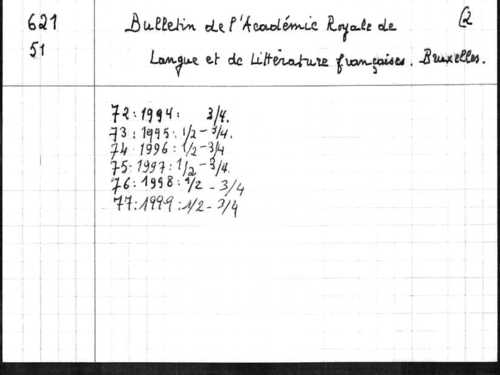 621 Bulletin de l'Académie Royale de (2
51 Langue et de Littérature françaises. Bruxelles.
72:1994: 3/4.
73:1995:1/2-3/4.
74:1996:1/2-3/4
75:1997:1/2-3/4.
76:1998:1/2-3/4
77:1999:1/2-3/4